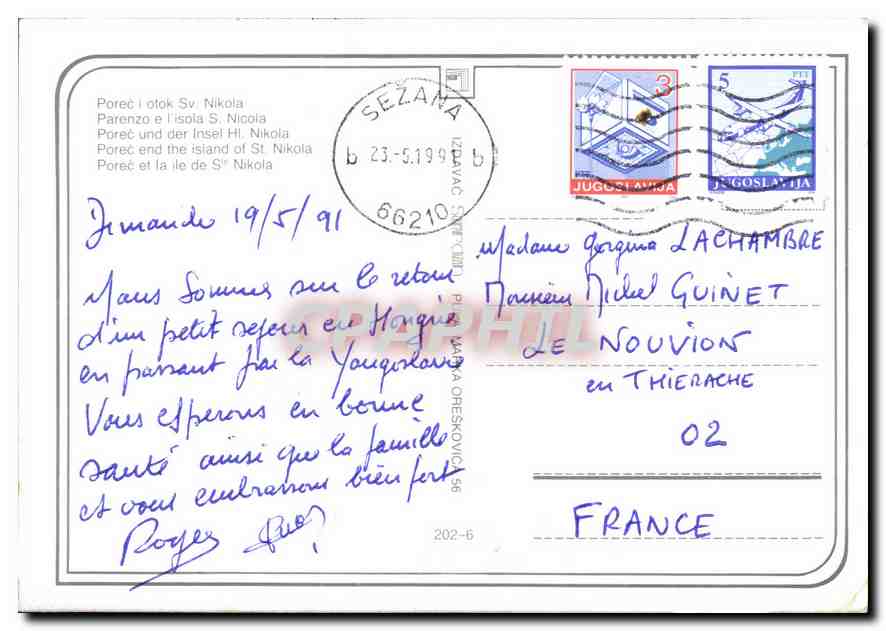 Poreč i otok Sv. Nikola
Parenzo e l'isola S. Nicola
Poreč und der Insel Hl. Nikola
Poreč end the island of St. Nikola
Poreč et la île de Ste Nikola
SEŽANA
b 23.-5.199 b
66210
3
JUGOSLAVIJA
5 PTT
JUGOSLAVIJA
Dimanche 19/5/91
Nous sommes sur le retour
d'un petit sejour en Hongrie
en passant par la Yougoslavie
Vous esperons en bonne
santé ainsi que la famille
et vous embrassons bien fort
Roger
Madame Georgina LACHAMBRE
Monsieur Michel GUINET
LE NOUVION
en THIERACHE
02
FRANCE
IZDAVAČ MARKA OREŠKOVIĆA 56
202-6
CPAPHIL